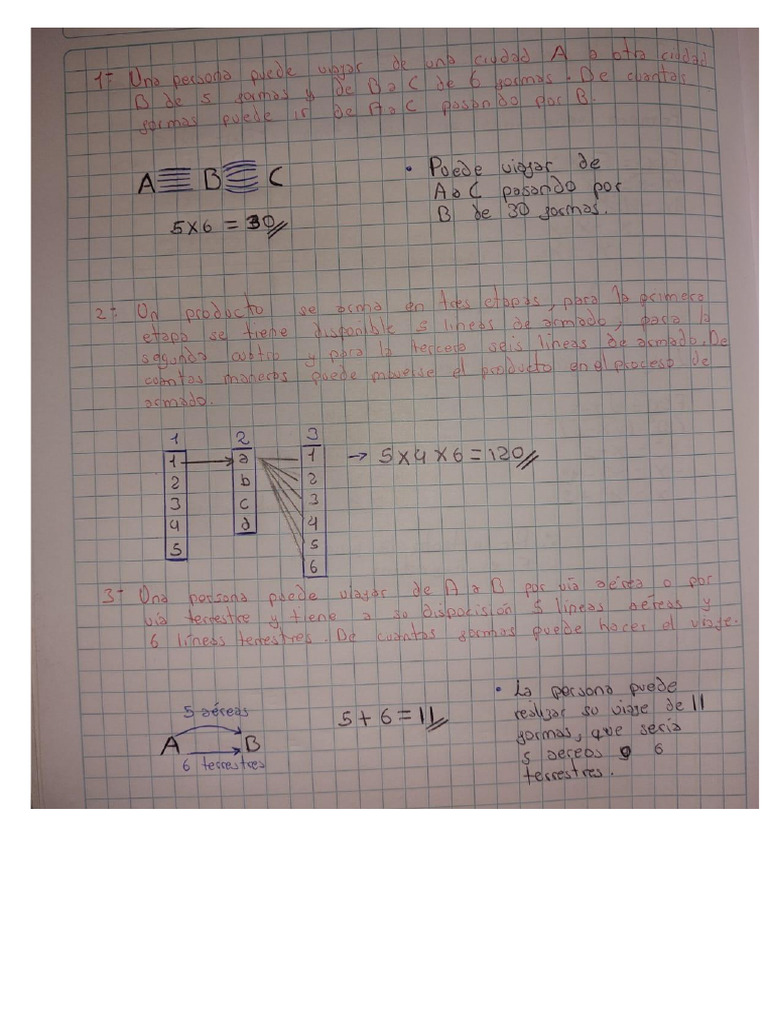 1- Una persona puede viajar de una ciudad A a otra ciudad
B de 5 formas y de B a C de 6 formas. De cuantas
formas puede ir de A a C pasando por B.
A B C
5 x 6 = 30
• Puede viajar de
A a C pasando por
B de 30 formas.
2- Un producto se arma en tres etapas, para la primera
etapa se tiene disponible 5 líneas de armado, para la
segunda cuatro y para la tercera seis líneas de armado. De
cuantas maneras puede moverse el producto en el proceso de
armado.
1 2 3
1 a 1
2 b 2
3 c 3
4 d 4
5 5
6
→ 5 x 4 x 6 = 120
3- Una persona puede viajar de A a B por vía aérea o por
vía terrestre y tiene a su disposición 5 líneas aéreas y
6 líneas terrestres. De cuantas formas puede hacer el viaje.
5 aéreas
A B
6 terrestres
5 + 6 = 11
• La persona puede
realizar su viaje de 11
formas, que sería
5 aereas o 6
terrestres.